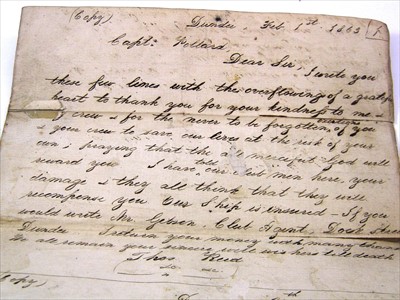 (Copy) Dundee, Feb 1st 1863
Capt: Pollard,
Dear Sir, I write you
these few lines with the overflowing of a grateful
heart to thank you for your kindness to me &
crew & for the never to be forgotten, of you
& your crew to save our lives at the risk of your
own & praying that the merciful God will
reward you I have told our men here, your
damage & they all think that they will
recompense you Our Ship is insured – If you
would write Mr Gibson, Club Agent, Dock Street
Dundee I return you money with many thanks
We all remain your sincere well wishers till death
Thos Reid
(Copy)